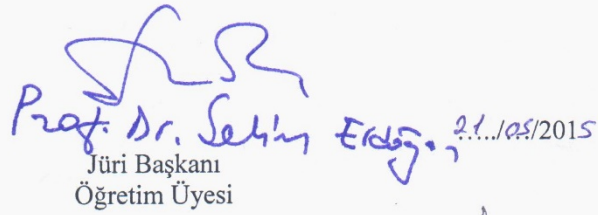 Prof. Dr. Selim Erdoğan 21/05/2015
Jüri Başkanı
Öğretim Üyesi